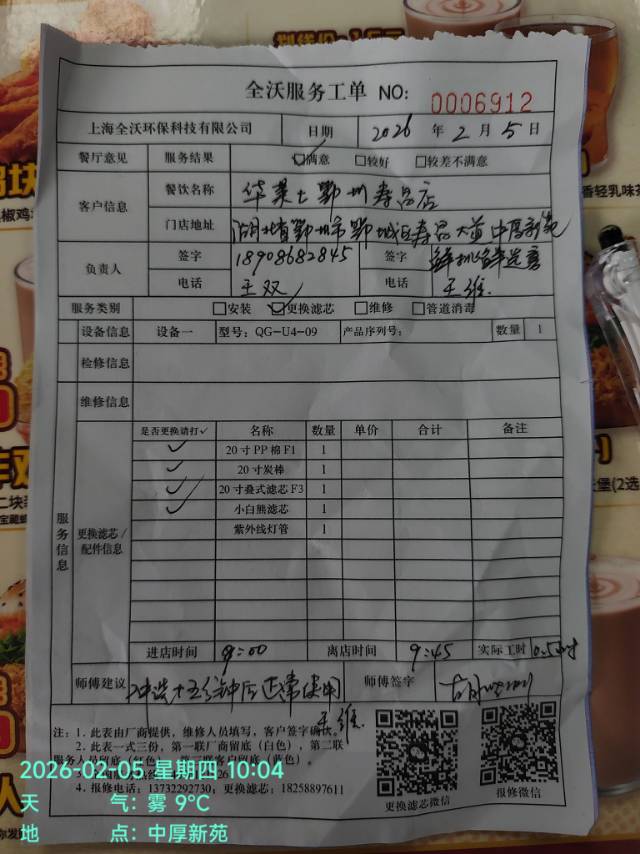 全沃服务工单 NO: 0006912
上海全沃环保科技有限公司 日期 2026年2月5日
餐厅意见 服务结果 ☑满意 □较好 □较差不满意
客户信息 餐饮名称 华莱士鄂州寿昌店
门店地址 湖北省鄂州市鄂城区寿昌大道中厚新苑
负责人 签字 18908682845 签字
电话 王双 电话 王维
服务类别 □安装 ☑更换滤芯 □维修 □管道消毒
设备信息 设备一 型号: QG-U4-09 产品序列号: 数量 1
检修信息
维修信息
服务信息
更换滤芯/配件信息
是否更换请打✓ 名称 数量 单价 合计 备注
✓ 20寸PP棉F1 1
✓ 20寸炭棒 1
✓ 20寸叠式滤芯F3 1
✓ 小白熊滤芯 1
紫外线灯管 1
进店时间 9:00 离店时间 9:45 实际工时
师傅建议 冲洗十五分钟后正常使用 师傅签字
王维
注: 1. 此表由厂商提供, 维修人员填写, 客户签字确认。
2. 此表一式三份, 第一联厂商留底(白色), 第二联
服务人员留底
客户留底(蓝色)。
4. 报修电话: 13732292730; 更换滤芯: 18258897611
更换滤芯微信 报修微信
2026-02-05 星期四 10:04
天 气: 雾 9℃
地 点: 中厚新苑